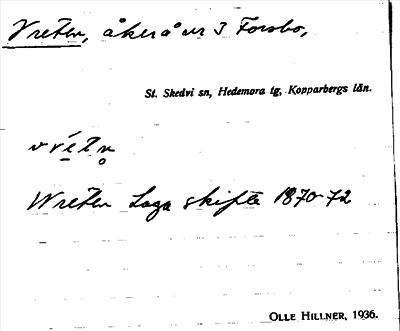 Vreten, åker å nr 3 Forsbo,
St. Skedvi sn, Hedemora tg, Kopparbergs län.
Wreten Laga skifte 1870-72
OLLE HILLNER, 1936.